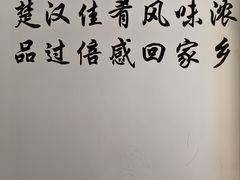 楚汉佳肴风味浓
品过倍感回家乡